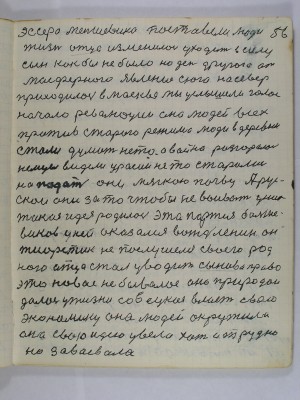 эссера меншевика поставели люди 56
жизн отца изменилос уходит в силу
сын как бы не было но ден другова от
маеферного явление сюго насевер
приходилос в москве мы услышали голос
начало революции она людей всех
против старого режима люди в деревни
стали думит нето. а вайна разгорелос
немцы видели урасий не то старались
на подат они мяккою почву а рус
ской они за то чтобы не воиват уних
такая идея родилос эта партия болше
виков у ней оказался вождленин он
теоретик не послушеле своего род
ного отца стал уводит сынов вправо
это новое не бывалое оно природой
далос ужизни собсукая власт свою
экономику она людей окружила
она свою идею увела хот и трудно
но завоевала